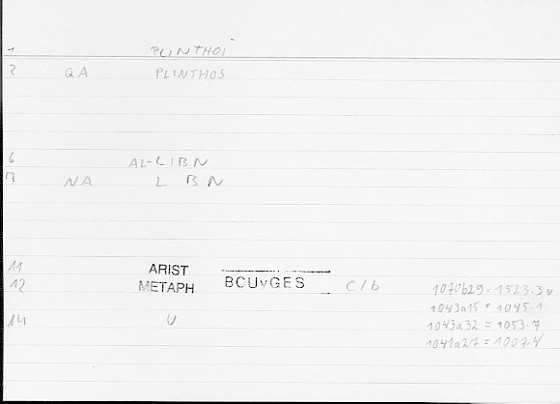 1 PLINTHOI
2 QA PLINTHOS
6 AL-LIBN
7 NA L B N
11 ARIST
12 METAPH BCUvGES C/b 1070b29=1523.3
1043a15=1045.1
14 U 1043a32=1053.7
1041a27=1007.4